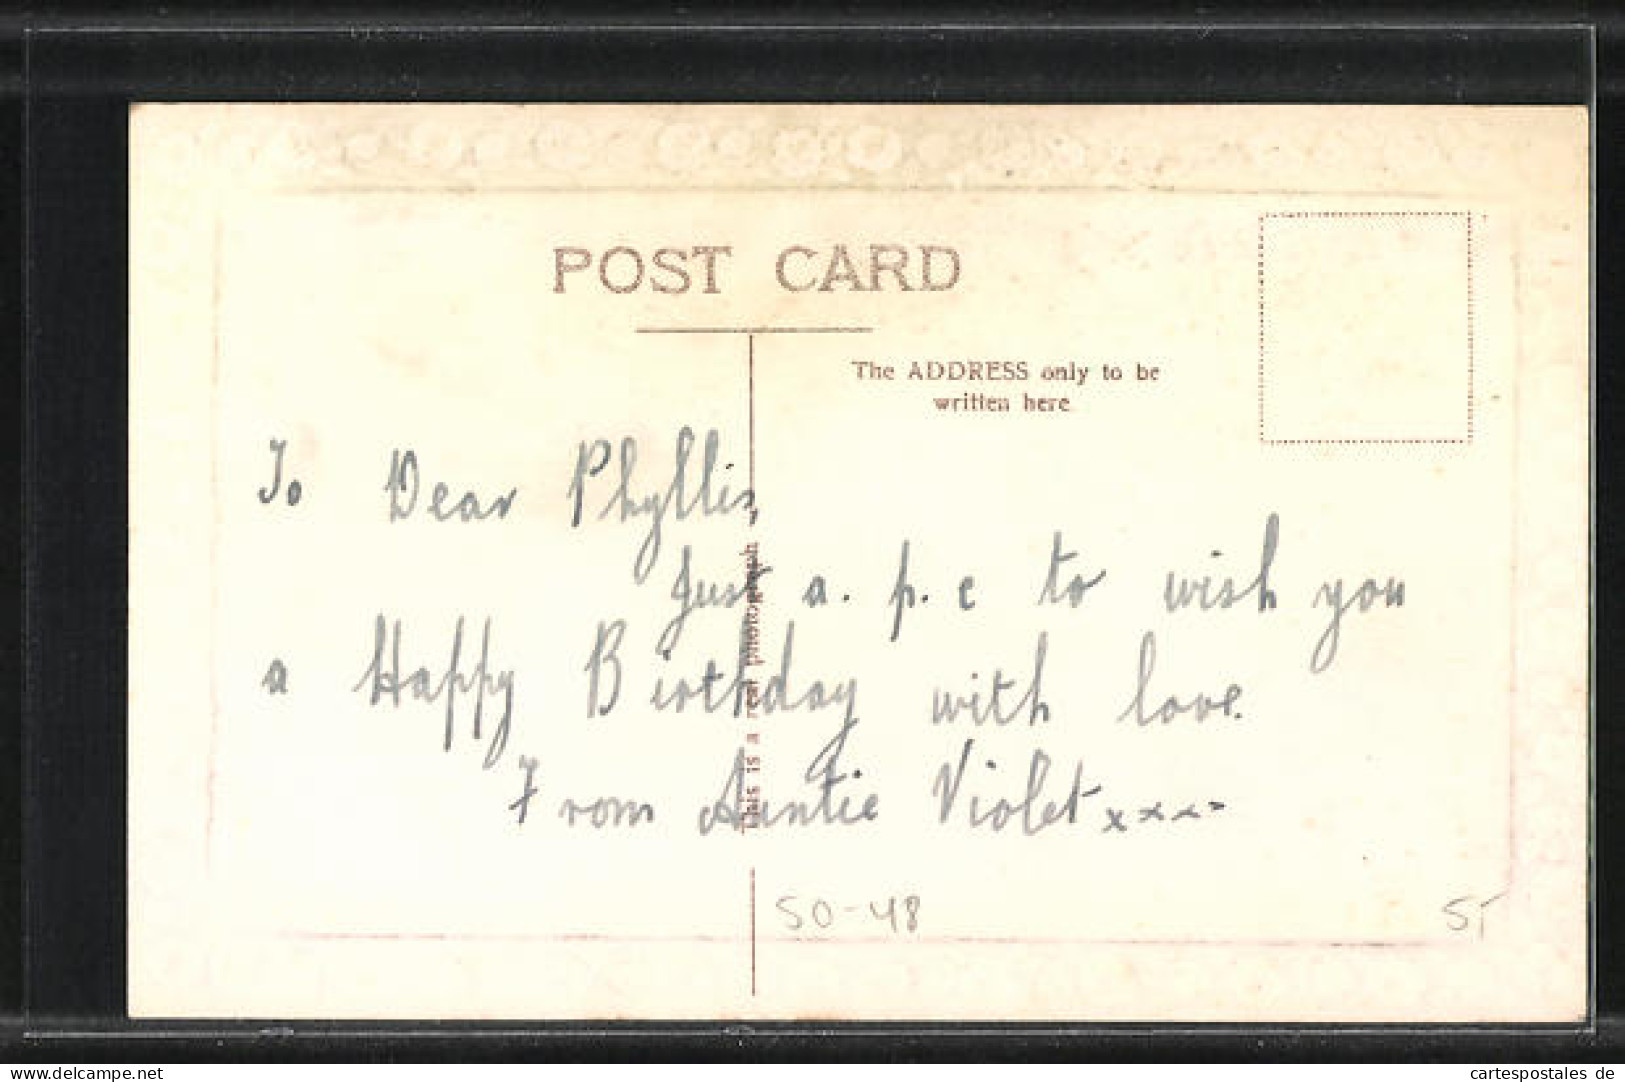 POST CARD
The ADDRESS only to be
written here.
To Dear Phyllis,
Just a. p. c to wish you
a Happy Birthday with love.
From Auntie Violet xxxx
This is a real photograph
50-48
5,-
www.delcampe.net
cartespostales de